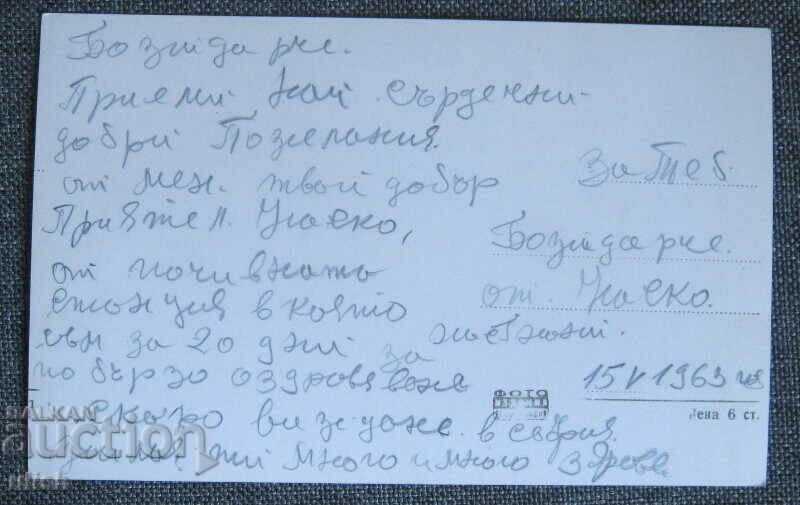 Божидарче.
Приеми най сърдечни
добри Пожелания.
от мен. твой добър
Приятел. Наско,
от почивната
станция в която
съм за 20 дни
за
по бързо оздравяване
скоро виждане в София.
ти много и много здраве
За Теб.
Божидарче.
от. Наско.
15 V 1963
ФОТО
Цена 6 ст.
BALKAN
auction